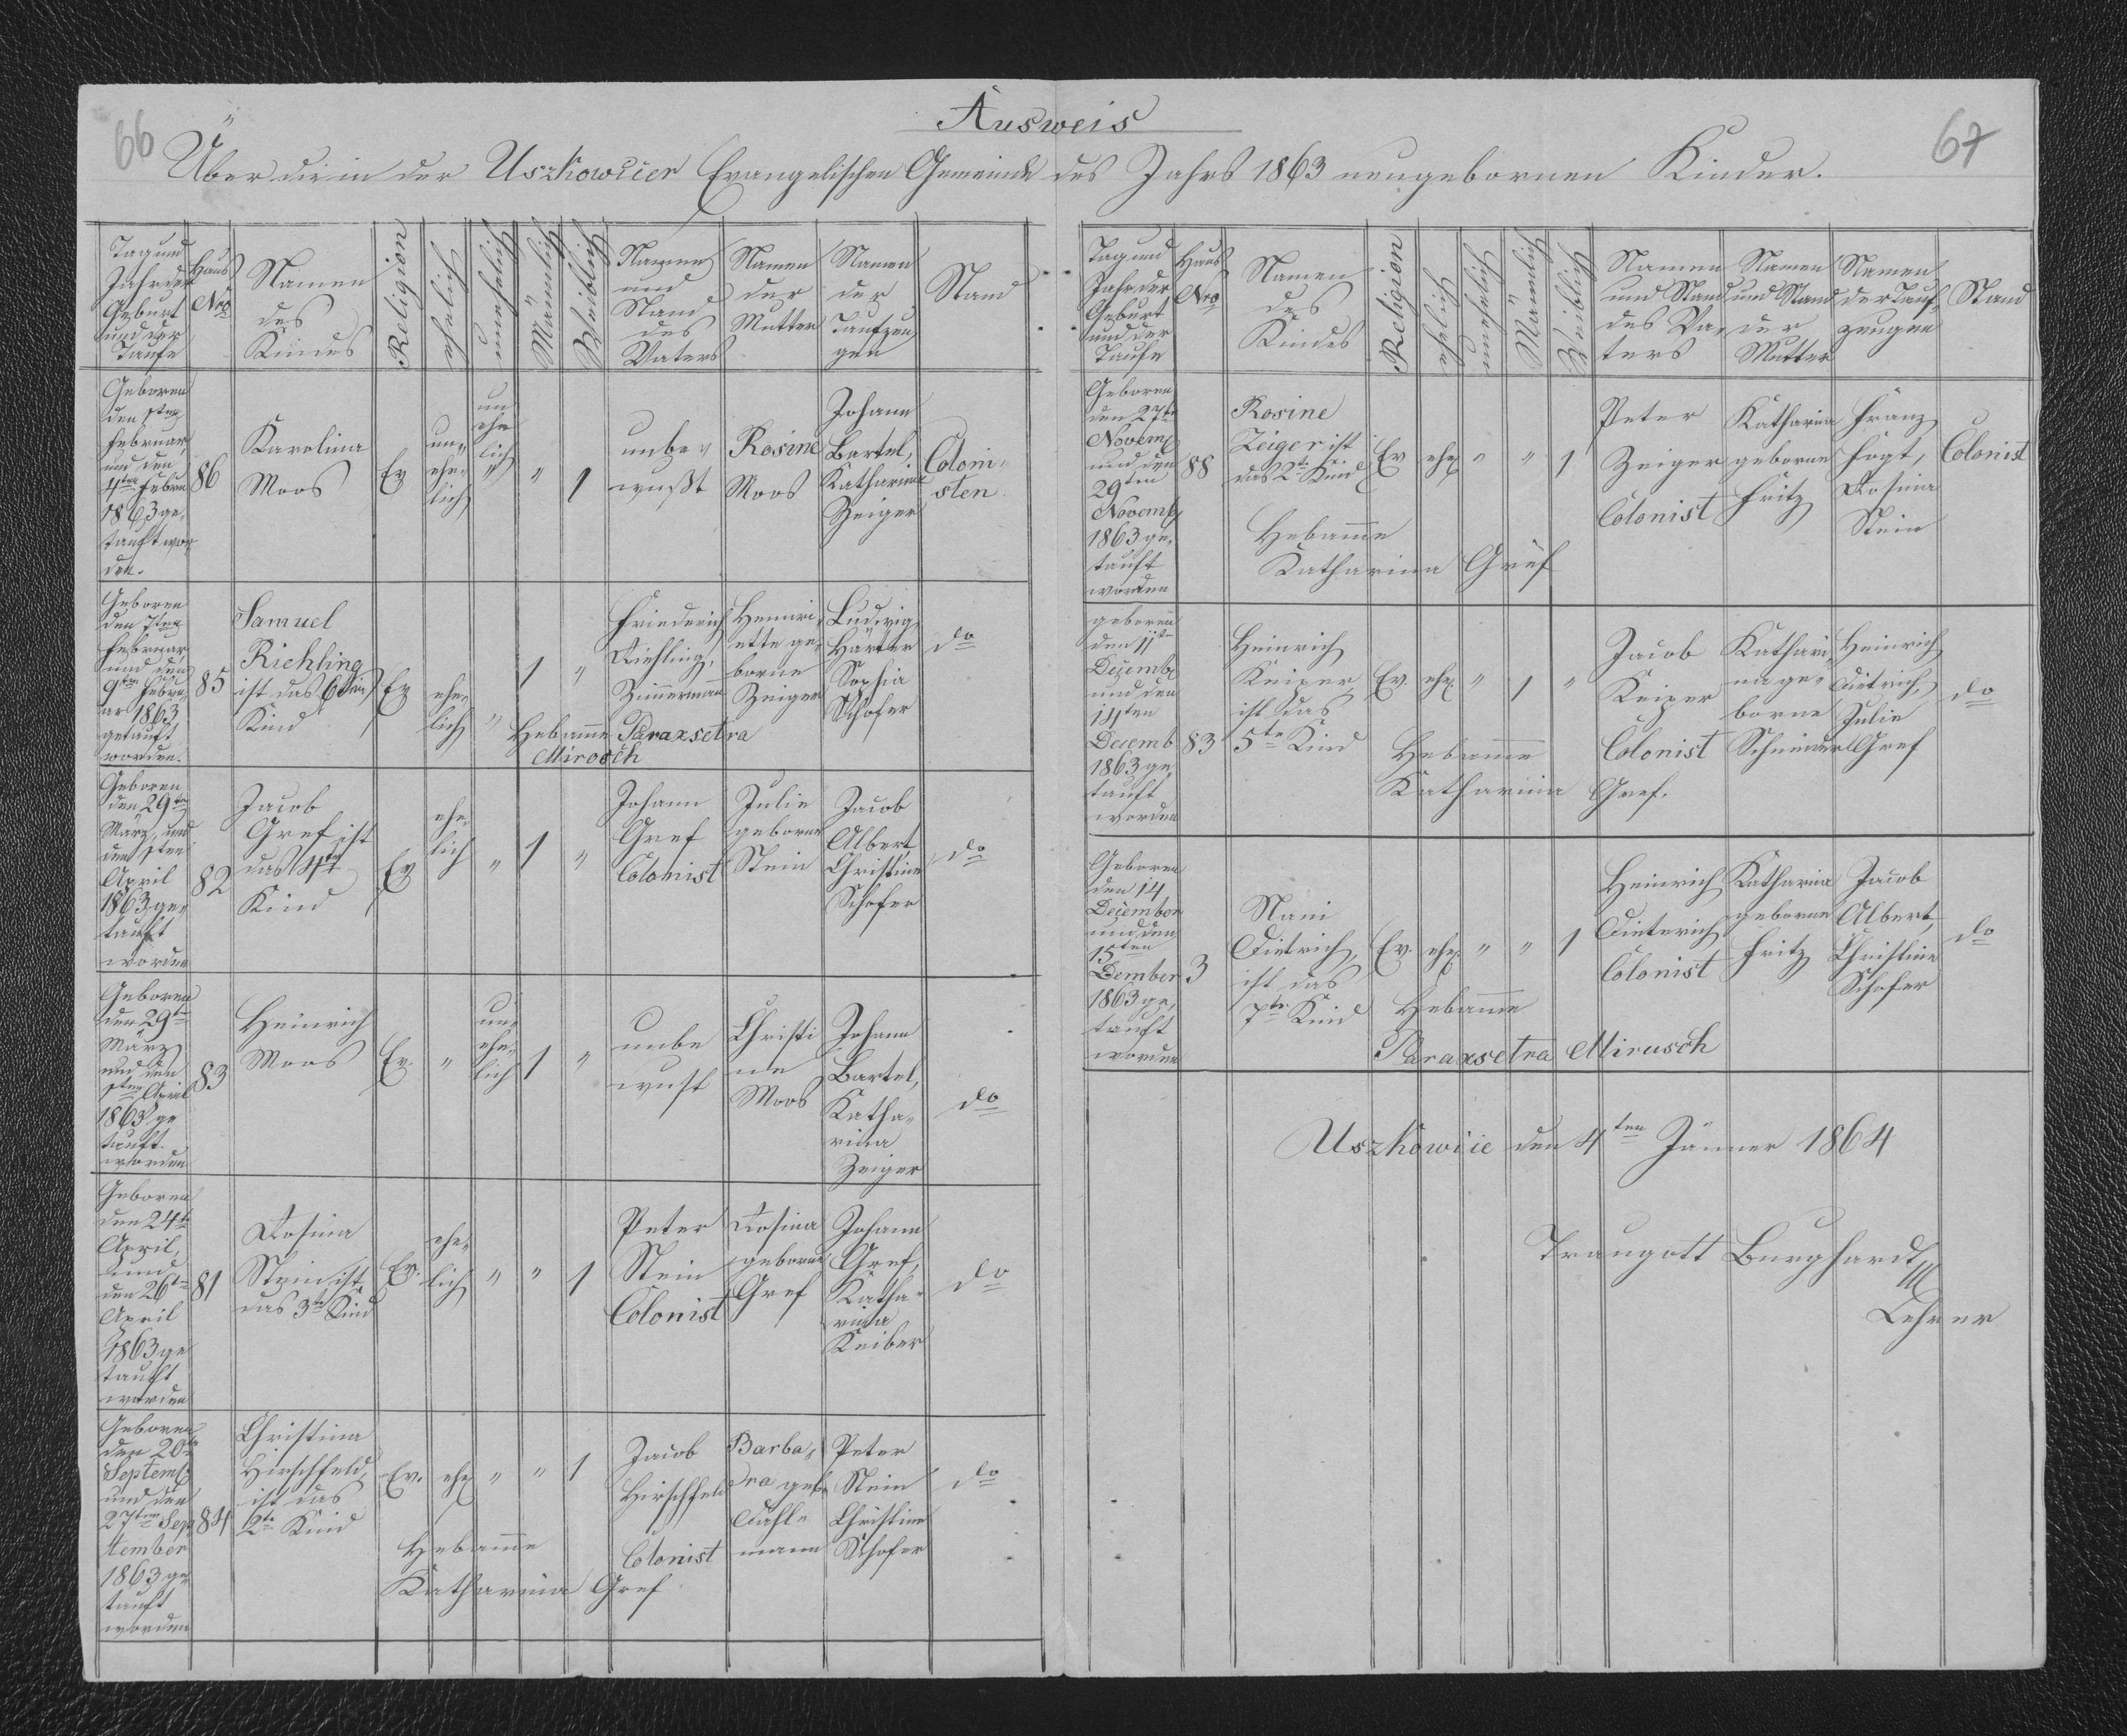 66
67
Ausweis
Über die in der Uszkowicer Evangelischen Gemeinde des Jahrs 1863 neugebornen Kinder.
Tag und Jahr der Geburt und der Taufe
Haus Nro
Namen des Kindes
Religion
ehelich
unehelich
Männlich
Weiblich
Namen und Stand des Vaters
Namen der Mutter
Namen der Taufzeu gen
Stand
Geboren
den 1ten
Februar,
und den
4ten Febru
1863 ge,
tauft wor
den.
86
Karolina
Moos
Ev
un„
ehe„
lich
un
ehe
lich
"
"
1
unbe„
wußt
Rosine
Moos
Johann
Bertel,
Katharine
Zeiger
Coloni„
sten
Geboren
den 7ten
Februar
und den
9ten Febru„
ar 1863
getauft
worden.
85
Samuel
Richling
ist das 6te
Kind
Ev
ehe„
lich
"
1
"
Friederich
Richling,
Zimmerman
Henri„
ette ge„
borne
Zeiger
Ludwig
Harter
Sophia
Schofer
do
Hebamme Paraxsetra
Mirosch
Geboren
den 29ten
März, und
den 1ten
April
1863 ge„
tauft
worden
82
Jacob
Gref ist
das 4te
Kind
Ev
ehe„
lich
"
1
"
Johann
Gref
Colonist
Julie
geborne
Stein
Jacob
Albert,
Christine
Schofer
do
Geboren
den 29te
März
und den
1ten April
1863 ge
tauft.
worden
83
Heinrich
Moos
Ev.
"
un„
ehe„
lich
1
"
unbe
wust
Christi
ne
Moos
Johann
Bartel,
Katha„
rina
Zeiger
do
Geboren
den 24te
April,
und
den 26te
April
1863 ge
tauft
worden
81
Rosina
Stein ist
das 3te Kind
Ev.
ehe„
lich
"
"
1
Peter
Stein
Colonist
Rosina
geborne
Gref
Johann
Gref,
Katha„
rina
Keiber
do
Geboren
den 20te
Septemb
und den
27ten Sep
tember
1863 ge
tauft
worden
84
Christina
Hirschfeld,
ist das
2te Kind
Ev.
ehe
"
"
1
Jacob
Hirschfeld
Colonist
Barba„
ra geb.
Dahl„
mann
Peter
Stein
Christine
Schofer
do
Hebamme
Katharina Gref
Tag und Jahr der Geburt und der Taufe
Haus Nro
Namen des Kindes
Religion
ehelich
unehelich
Männlich
Weiblich
Namen und Stand des Va„ ters
Namen und Stand der Mutter
Namen der Tauf„ zeugen
Stand
Geboren
den 27te
Novemb
und den
29ten
Novemb
1863 ge„
tauft
worden
88
Rosine
Zeiger ist
das 2te Kind
Ev
ehe
"
"
1
Peter
Zeiger
Colonist
Katharina
geborne
Fritz
Franz
Fogt,
Rosina
Stein
Colonist
Hebamme
Katharina Gref
geboren
den 11te
Dezemb
und den
14ten
Decemb
1863 ge
tauft
worden
83
Heinrich
Keiper,
ist das
5te Kind
Ev.
ehe
"
1
"
Jacob
Keiper
Colonist
Kathari„
na ge„
borne
Schneider
Heinrich
Dietrich,
Julie
Gref
do
Hebamme
Katharina Gref.
Geboren
den 14
December
und den
15ten
Dember
1863 ge„
tauft
worden
3
Nani
Dietrich,
ist das
7te Kind
Ev.
ehe
"
"
1
Heinrich
Dieterich
Colonist
Katharina
geborne
Fritz
Jacob
Albert,
Christine
Schofer
do
Hebamme
Paraxsetra Mirusch
Uszkowice den 4ten Jänner 1864
Traugott Burghardt
Lehrer